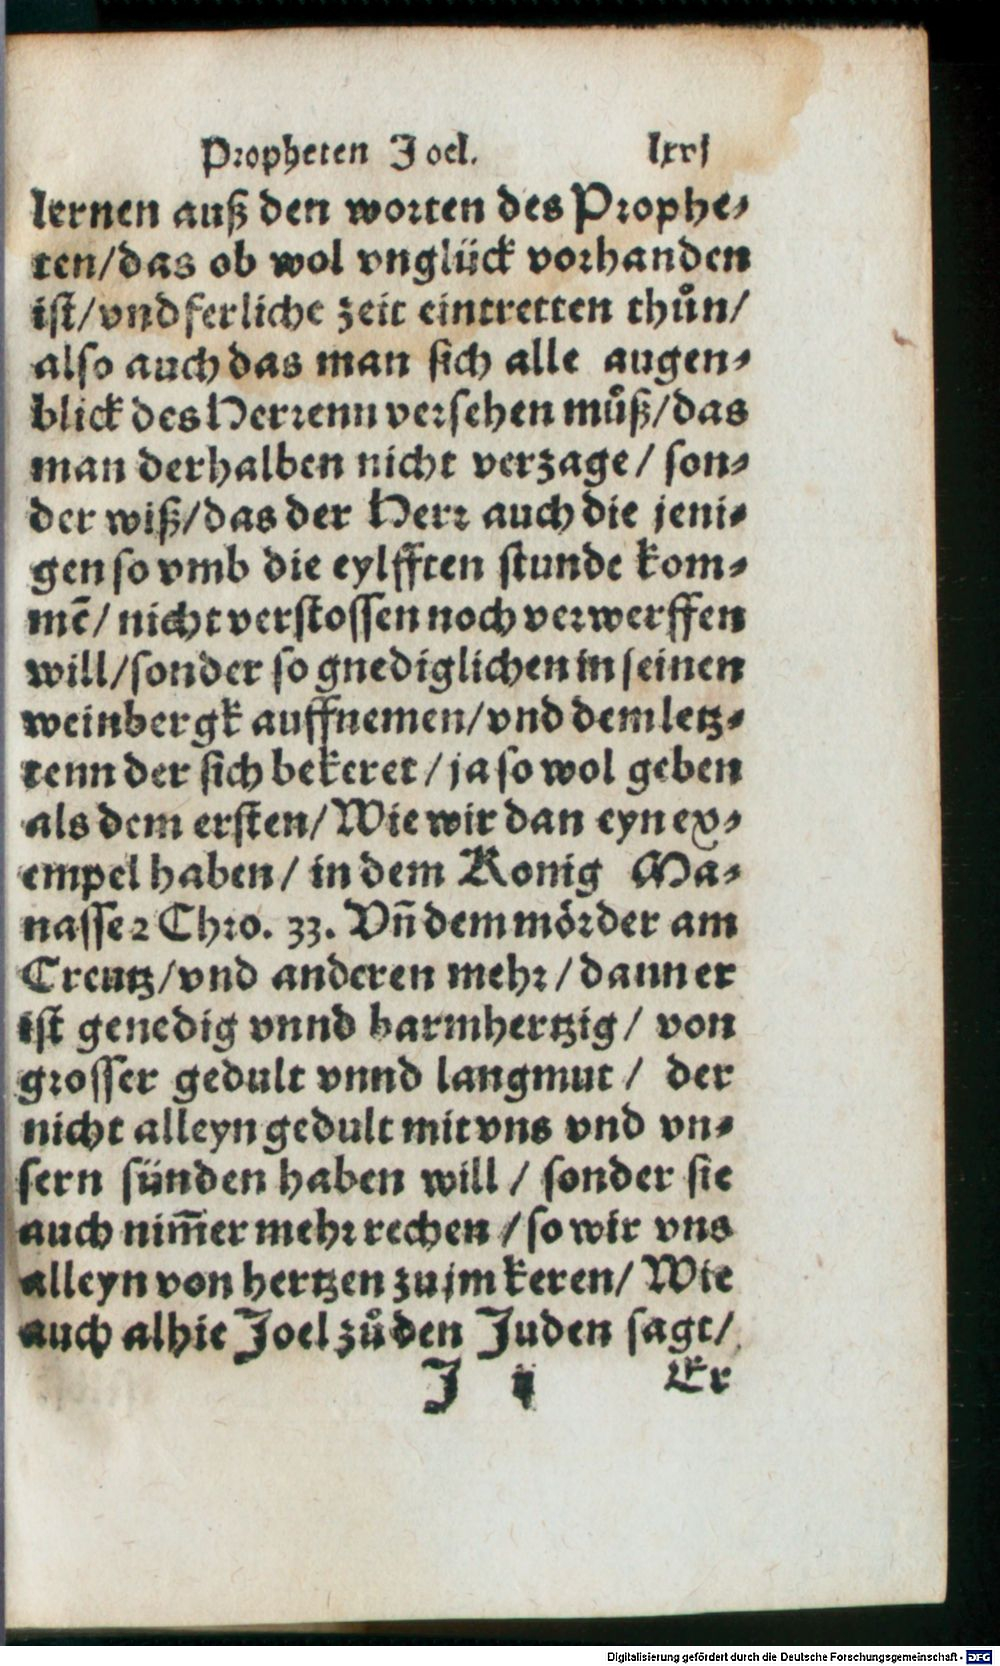 Propheten Joel. lxxj
lernen auß den worten des Prophe-
ten/das ob wol vnglück vorhanden
ist/vnd ferliche zeit eintretten thůn/
also auch das man sich alle augen-
blick des Herrenn versehen můß/das
man derhalben nicht verzage/ son-
der wiß/das der Herr auch die jeni-
gen so vmb die eylfften stunde kom-
mē/ nicht verstossen noch verwerffen
will/sonder so gnediglichen in seinen
weinbergk auffnemen/vnd dem letz-
tenn der sich bekeret/ja so wol geben
als dem ersten/Wie wir dan eyn ex-
empel haben/ in dem Konig Ma-
nasse 2 Chro. 33. Vn̄ dem mörder am
Creutz/vnd anderen mehr/dann er
ist genedig vnnd barmhertzig/ von
grosser gedult vnnd langmut/ der
nicht alleyn gedult mit vns vnd vn-
sern sünden haben will/ sonder sie
auch nim̄er mehr rechen/so wir vns
alleyn von hertzen zu jm keren/Wie
auch alhie Joel zů den Juden sagt/
J ij Er
Digitalisierung gefördert durch die Deutsche Forschungsgemeinschaft - DFG